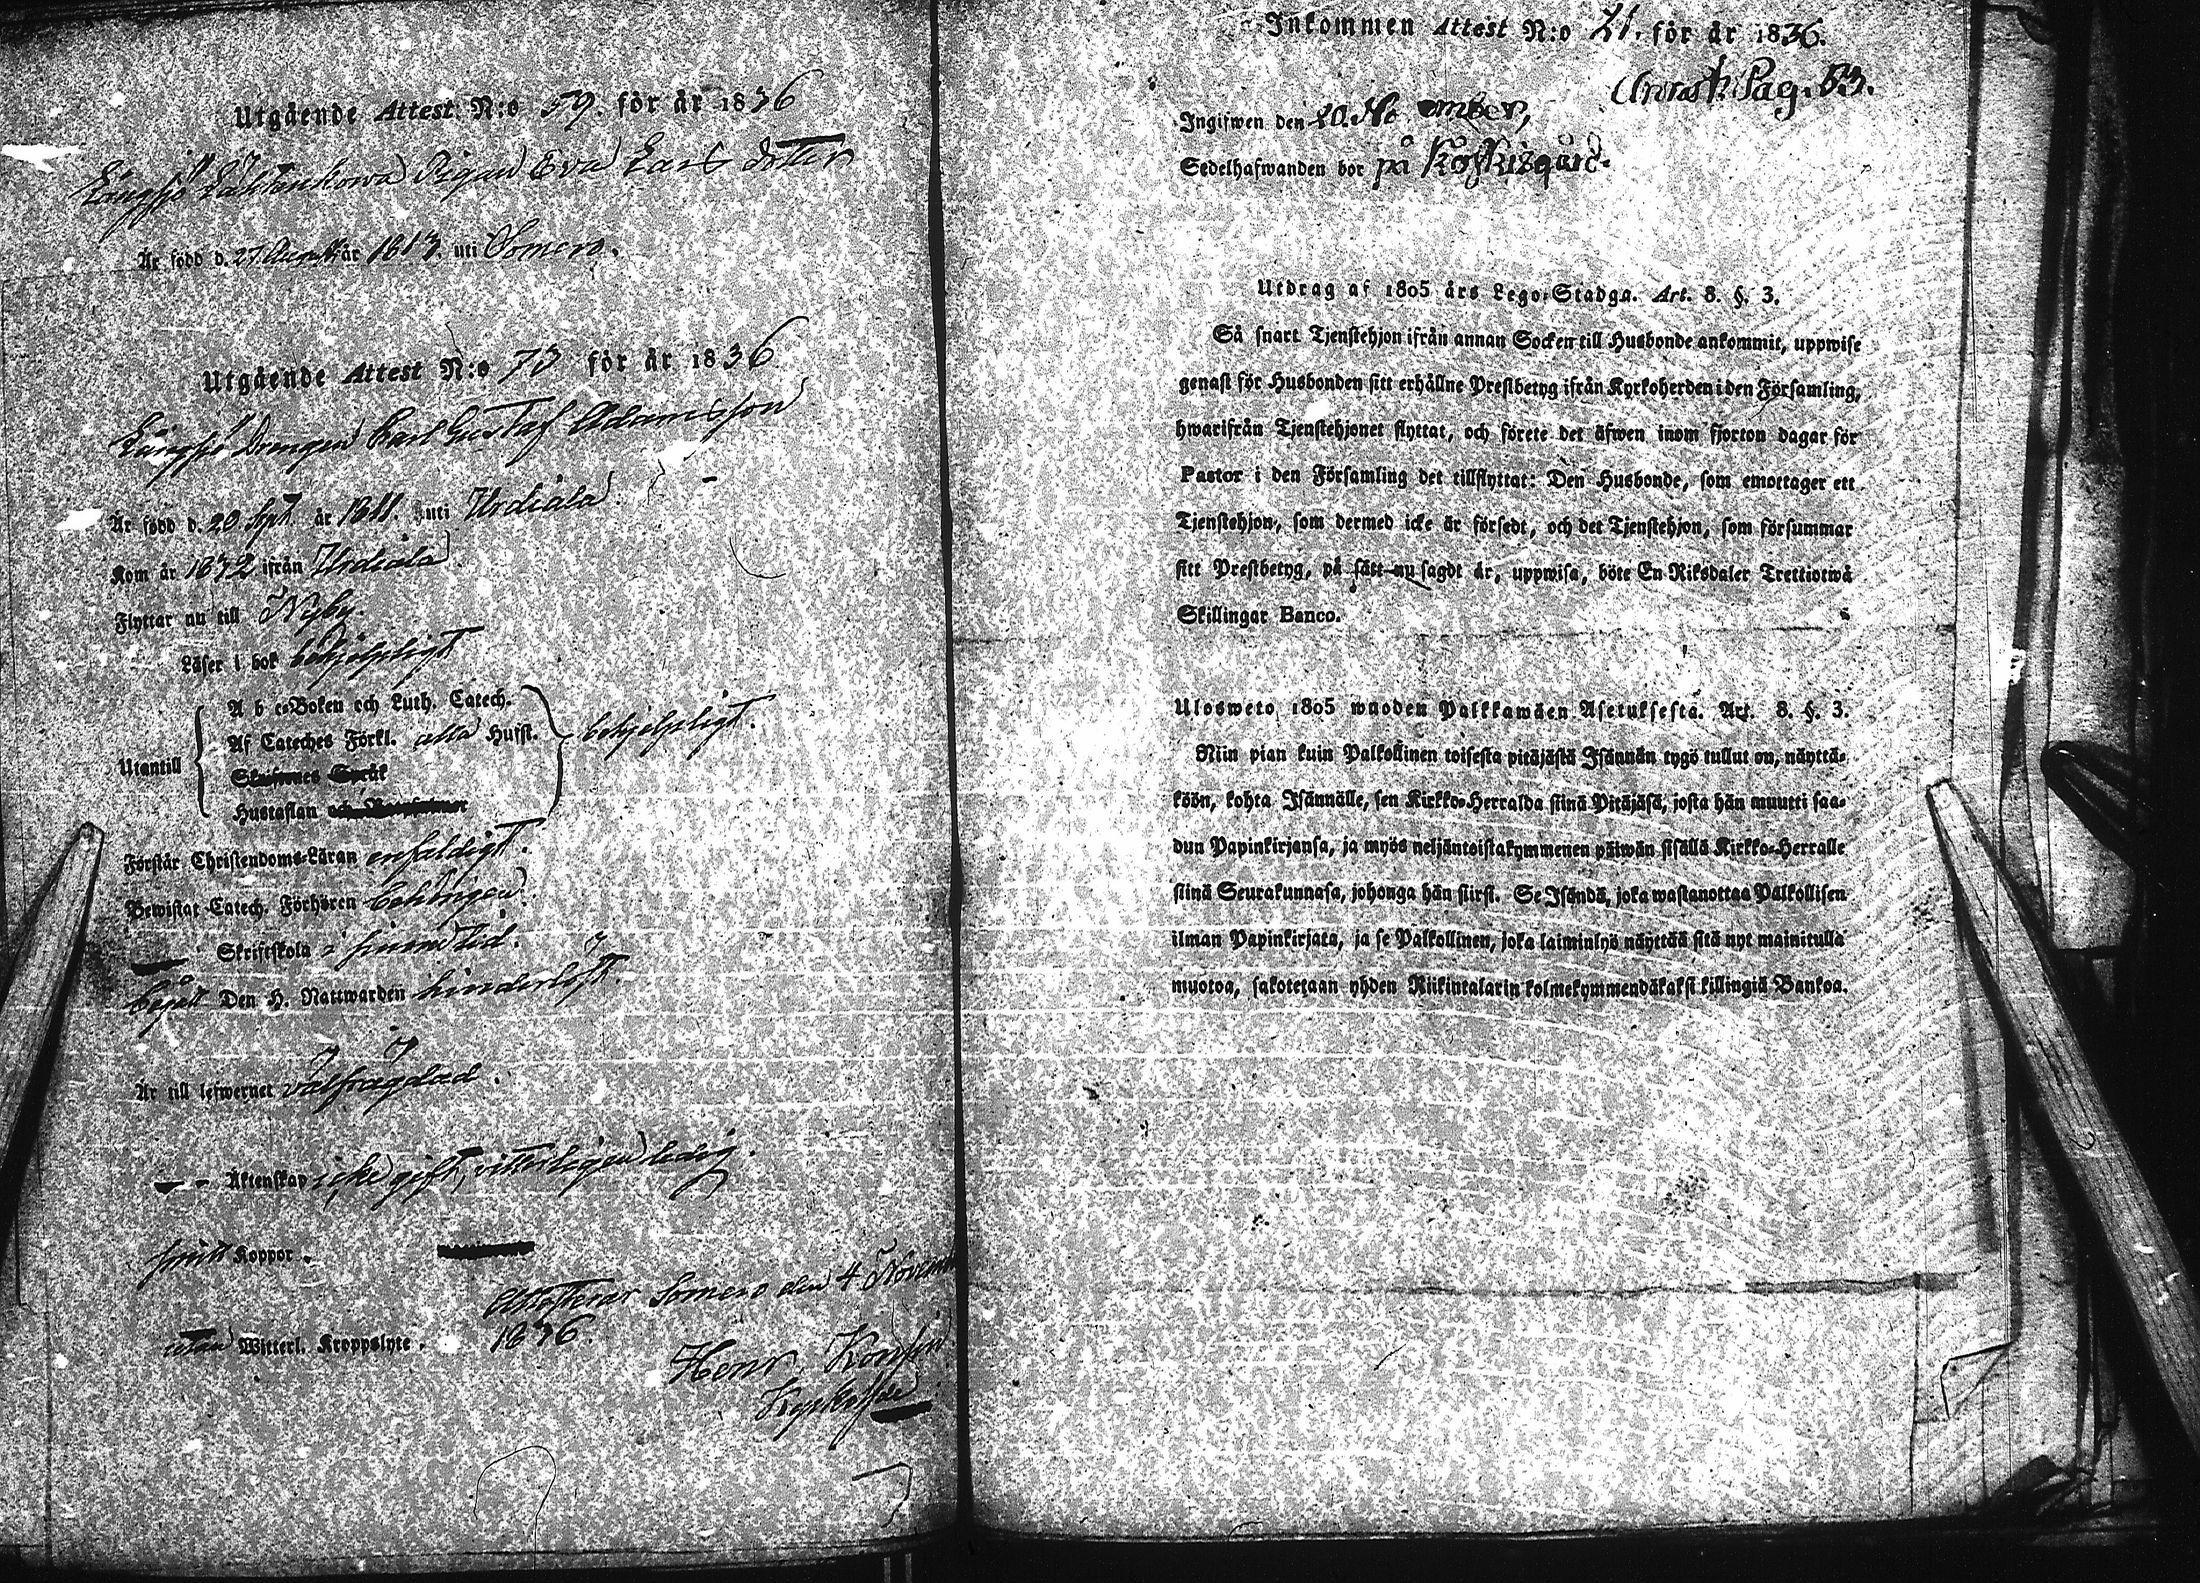 Utgående Attest N:o 59. för år 1836
Långsjö Pigan Eva Carls dotter
Är född d. 27 Augusti år 1813. uti Somero.
Utgående Attest N:o 73 för år 1836
Långsjö Drengen Carl Gustaf Adamsson
Är född d. 20 Sept. år 1811. uti Urdiala
Kom år 1832 ifrån Urdiala
Flyttar nu till Nyby.
Läser i bok behjelpligt
A b c-Boken och Luth. Catech.
Af Cateches Förkl. alla Hufst. behjelpligt.
Utantill
Skufrnes Språk
Hustaflan och
Förstår Christendoms-Läran enfaldigt.
Bewistat Catech. Förhören behörigen.
Skriftskola i sinom tid.
begått Den H. Nattwarden hinderlöst.
Är till lefwernet välfrägdad.
Äktenskap icke gift, vitterligen ledig.
haft Koppor.
Attesterar Somero den 4 Novemb
utan Witterl. Kroppslyte. 1836.
Henr. Konsin
Kyrkohde
Inkommen Attest N:o 21. för år 1836.
Annot. Pag. 53.
Ingifwen den 20. No ember,
Sedelhafwanden bor på Koskisgård.
Utdrag af 1805 års Lego-Stadga. Art. 8. §. 3.
Så snart Tjenstehjon ifrån annan Socken till Husbonde ankommit, uppwise
genast för Husbonden sitt erhållne Prestbetyg ifrån Kyrkoherden i den Församling,
hwarifrån Tjenstehjonet flyttat, och förete det äfwen inom fjorton dagar för
Pastor i den Församling det tillflyttat: Den Husbonde, som emottager ett
Tjenstehjon, som dermed icke är försedt, och det Tjenstehjon, som försummar
sitt Prestbetyg, på sätt nu sagdt är, uppwisa, böte En Riksdaler Trettiotwå
Skillingar Banco.
Ulosweto 1805 wuoden Palkkawäen Asetuksesta. Art. 8. §. 3.
Niin pian kuin Palkollinen toisesta pitäjästä Isännän tygö tullut on, näyttä-
köön, kohta Isännälle, sen Kirkko-Herralda siinä Pitäjäsä, josta hän muutti saa-
dun Papinkirjansa, ja myös neljäntoistakymmenen päiwän sisällä Kirkko-Herralle
siinä Seurakunnasa, johonga hän siirsi. Se Isändä, joka wastanottaa Palkollisen
ilman Papinkirjata, ja se Palkollinen, joka laiminlyö näyttää sitä nyt mainitulla
muotoa, sakotetaan yhden Riikintalarin kolmekymmendäkaksi killingiä Bankoa.